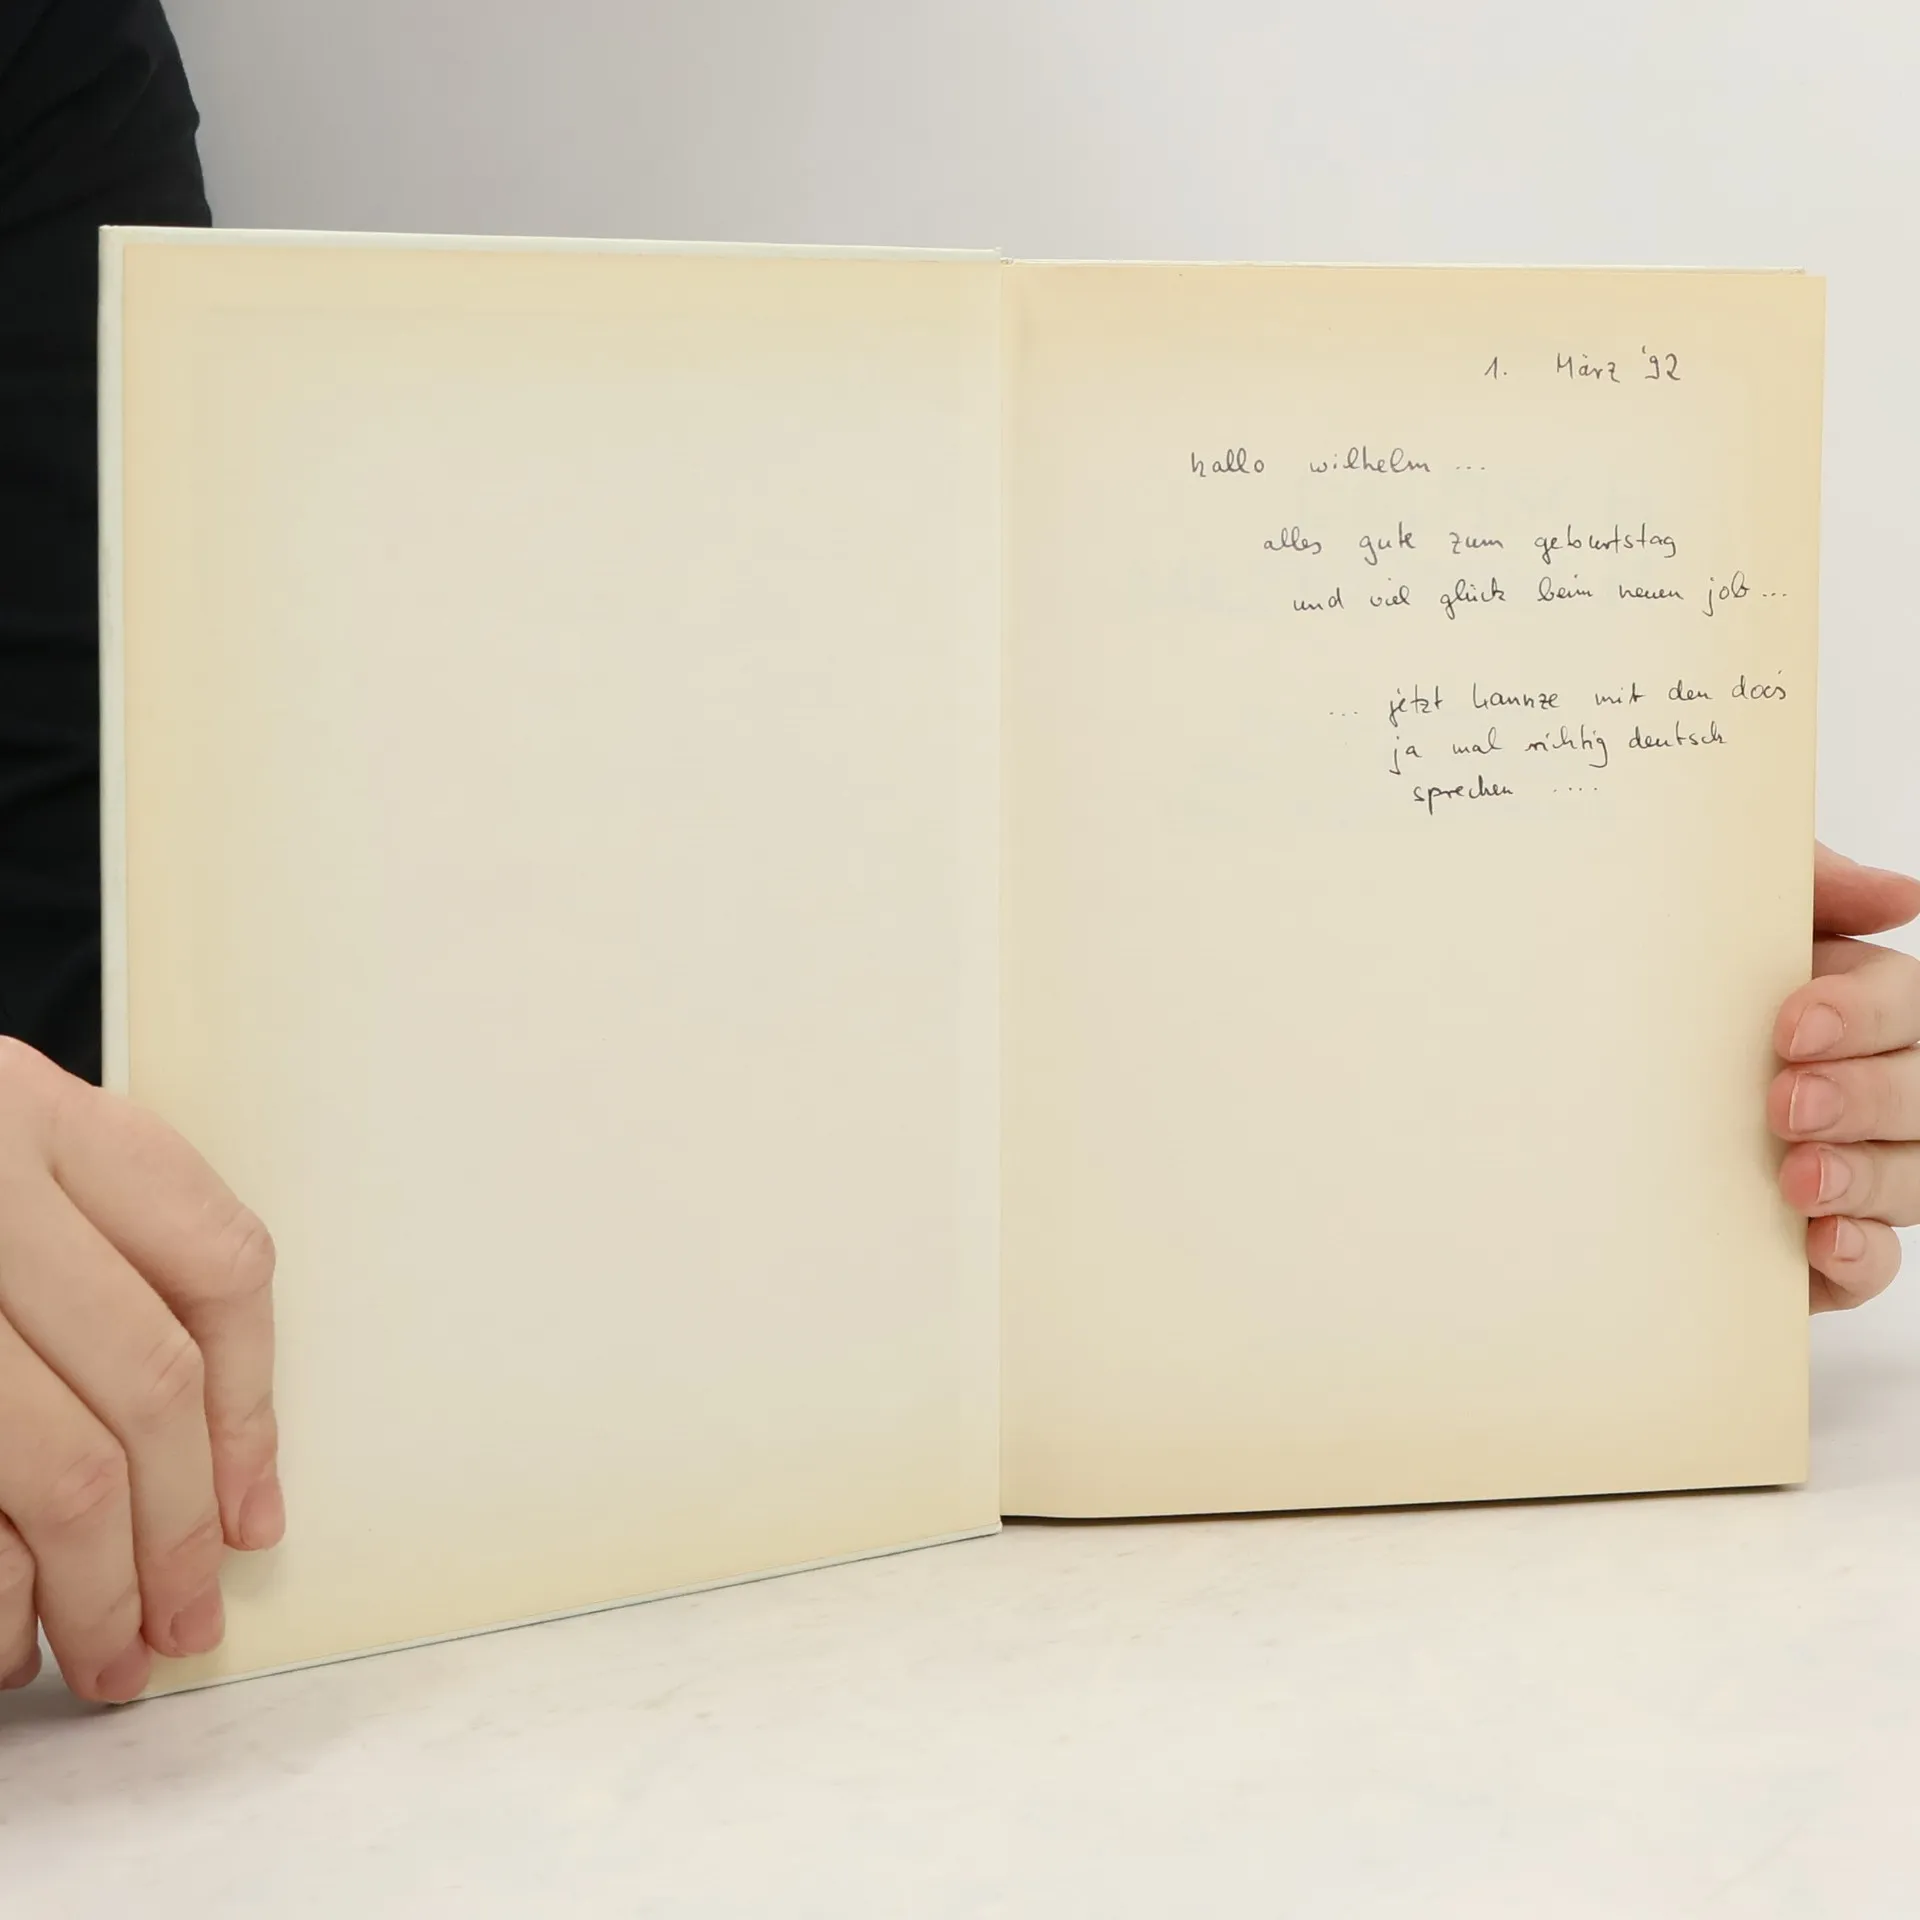 1. März '92
hallo wilhelm ...
alles gute zum geburtstag
und viel glück beim neuen job ...
... jetzt kannze mit den docs
ja mal richtig deutsch
sprechen ....